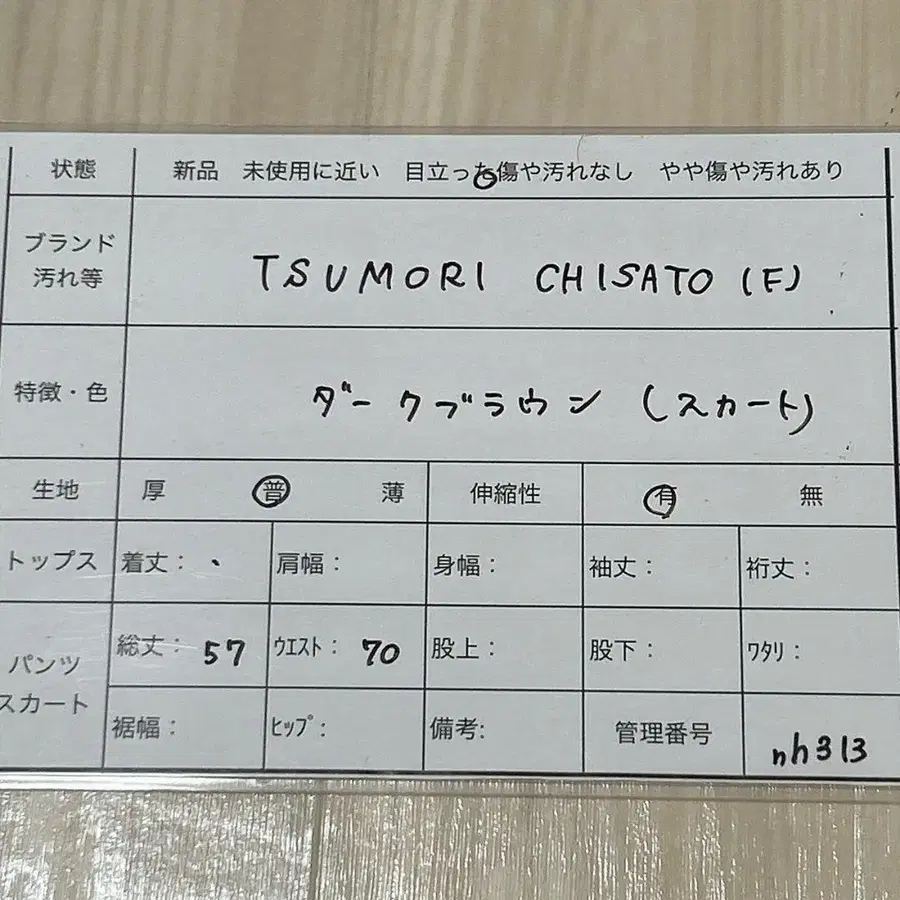 状態 新品 未使用に近い 目立った傷や汚れなし やや傷や汚れあり
ブランド
汚れ等
TSUMORI CHISATO (F)
特徴・色 ダークブラウン (スカート)
生地 厚 普 薄 伸縮性 有 無
トップス 着丈: 肩幅: 身幅: 袖丈: 裄丈:
パンツ
スカート
総丈: 57 ウエスト: 70 股上: 股下: ワタリ:
裾幅: ヒップ: 備考: 管理番号 nh313